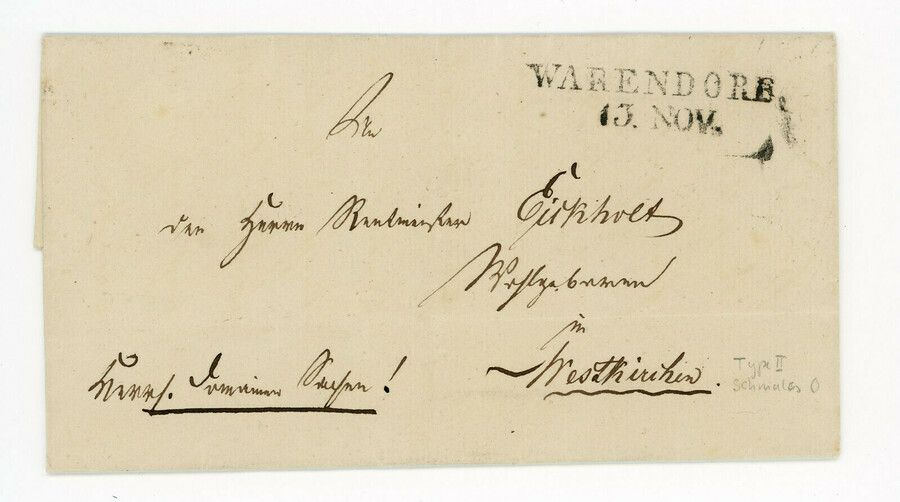 WARENDORF.
13. NOV.
An
den Herrn Rentmeister Eickholt
Wohlgeboren
in
Westkirchen.
Herrs. Domainen Sachen!
Type II
Schmales O